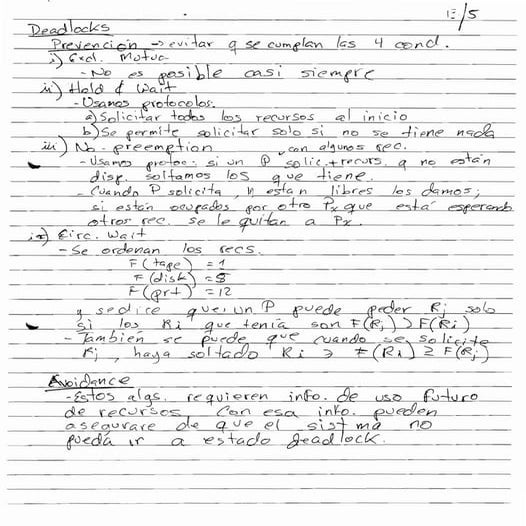 E/5
Deadlocks
Prevención → evitar q se cumplan las 4 cond.
i) Excl. Mutua
- No es posible casi siempre
ii) Hold & Wait
- Usamos protocolos:
a) Solicitar todos los recursos al inicio
b) Se permite solicitar solo si no se tiene nada
iii) No-preemption con algunos rec.
- Usamos protoc: si un P solic. + recurs. q no están
disp. soltamos los que tiene.
- Cuando P solicita, y estan libres los damos;
si están ocupados por otro Px que está esperando
otros rec. se le quitan a Px.
iv) Circ. Wait
- Se ordenan los recs.
F(tape) = 1
F(disk) = 5
F(prt) = 12
y se dice que: un P puede peder Rj solo
si los Ri que tenía son F(Rj) > F(Ri)
- También se puede que cuando se solicite
Rj, haya soltado Ri ∋ F(Ri) ≥ F(Rj)
Avoidance
- Estos algs. requieren info. de uso futuro
de recursos. Con esa info. pueden
asegurare de que el sistma no
pueda ir a estado deadlock.